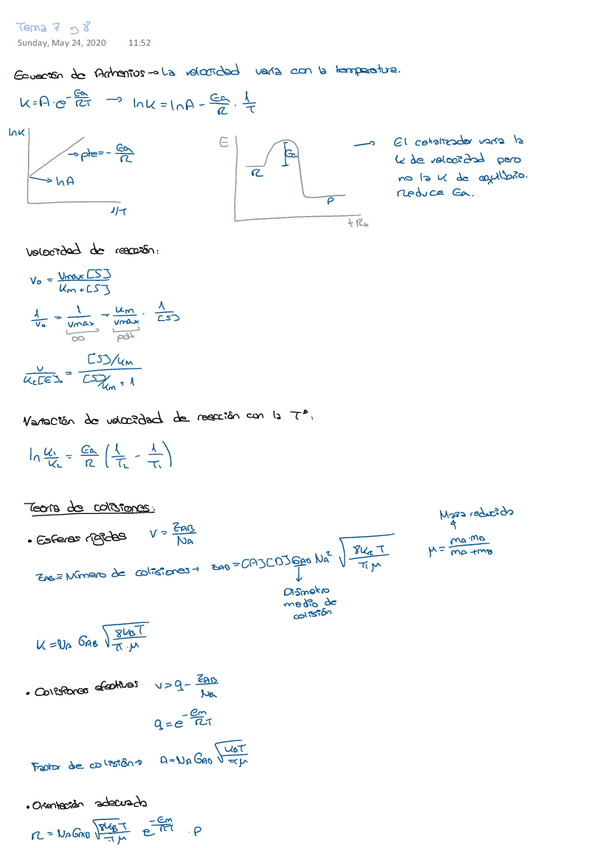 Tema 7 y 8
Sunday, May 24, 2020 11:52
Ecuación de Arrhenios → La velocidad varia con la temperatura.
K = A · e^(-Ea/RT) → lnK = lnA - Ea/R · 1/T
lnK
→ pte = - Ea/R
→ lnA
1/T
E
R
Ea
P
+ Rx
→ El catalizador varia la
K de velocidad pero
no la K de equilibrio.
Reduce Ea.
Velocidad de reacción:
V₀ = Vmax[S] / Km + [S]
1/V₀ = 1/Vmax + Km/Vmax · 1/[S]
oo pdt
V/K₂[E]₀ = [S]/KM / [S]/KM + 1
Variación de velocidad de reacción con la Tª:
ln K₁/K₂ = Ea/R (1/T₂ - 1/T₁)
Teoria de colisiones:
• Esferas rígidas V = ZAB/NA
ZAB ≡ Número de colisiones → ZAB = [A][B] GAB NA² √(8KBT/πμ)
Diámetro
medio de
colisión
Masa reducida
μ = mA·mB / mA+mB
K = NA GAB √(8KBT/π·μ)
• Colisiones efectivas V = q - ZAB/NA
q = e^(-Em/RT)
Factor de colisión → A = NA GAB √(KBT/πμ)
• Orientación adecuada
R = NA GAB √(8KBT/πμ) e^(-Em/RT) · P